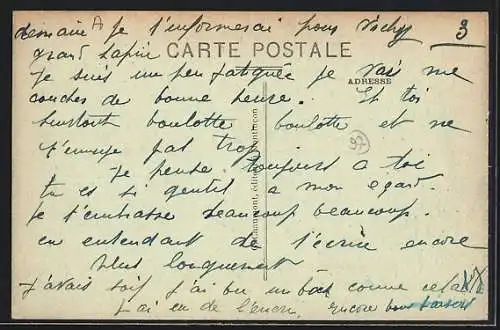 demain je t'informerai pour Vichy 3
grand lapin
CARTE POSTALE
Je suis un peu fatiguée je vais me
ADRESSE
coucher de bonne heure. Et toi
surtout boulotte boulotte et ne
t'ennuie pas trop.
97
Je pense toujours a toi
tu es si gentil a mon égard.
Je t'embrasse beaucoup beaucoup.
en entendant de t'écrire encore
plus longuement
J'avais soif j'ai bu un comme cela
j'ai eu de l'encre, encore